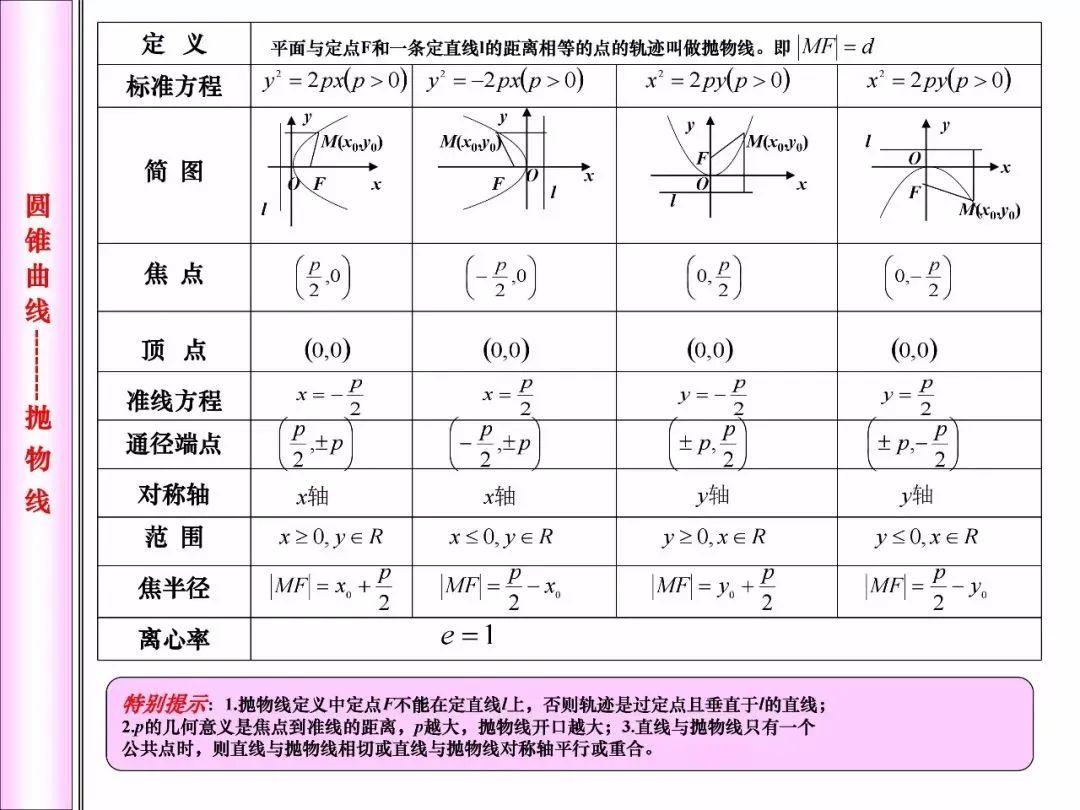 圆锥曲线--------抛物线
定 义 平面与定点F和一条定直线l的距离相等的点的轨迹叫做抛物线。即 |MF| = d
标准方程 y² = 2px(p > 0) y² = −2px(p > 0) x² = 2py(p > 0) x² = 2py(p > 0)
简 图
y M(x₀,y₀) O F x l
y M(x₀,y₀) F O x l
y M(x₀,y₀) F O x l
l y O x F M(x₀,y₀)
焦 点 (p/2,0) (−p/2,0) (0,p/2) (0,−p/2)
顶 点 (0,0) (0,0) (0,0) (0,0)
准线方程 x = −p/2 x = p/2 y = −p/2 y = p/2
通径端点 (p/2,±p) (−p/2,±p) (±p,p/2) (±p,−p/2)
对称轴 x轴 x轴 y轴 y轴
范 围 x ≥ 0, y ∈ R x ≤ 0, y ∈ R y ≥ 0, x ∈ R y ≤ 0, x ∈ R
焦半径 |MF| = x₀ + p/2 |MF| = p/2 − x₀ |MF| = y₀ + p/2 |MF| = p/2 − y₀
离心率 e = 1
特别提示：1.抛物线定义中定点F不能在定直线l上，否则轨迹是过定点且垂直于l的直线；
2.p的几何意义是焦点到准线的距离，p越大，抛物线开口越大；3.直线与抛物线只有一个
公共点时，则直线与抛物线相切或直线与抛物线对称轴平行或重合。